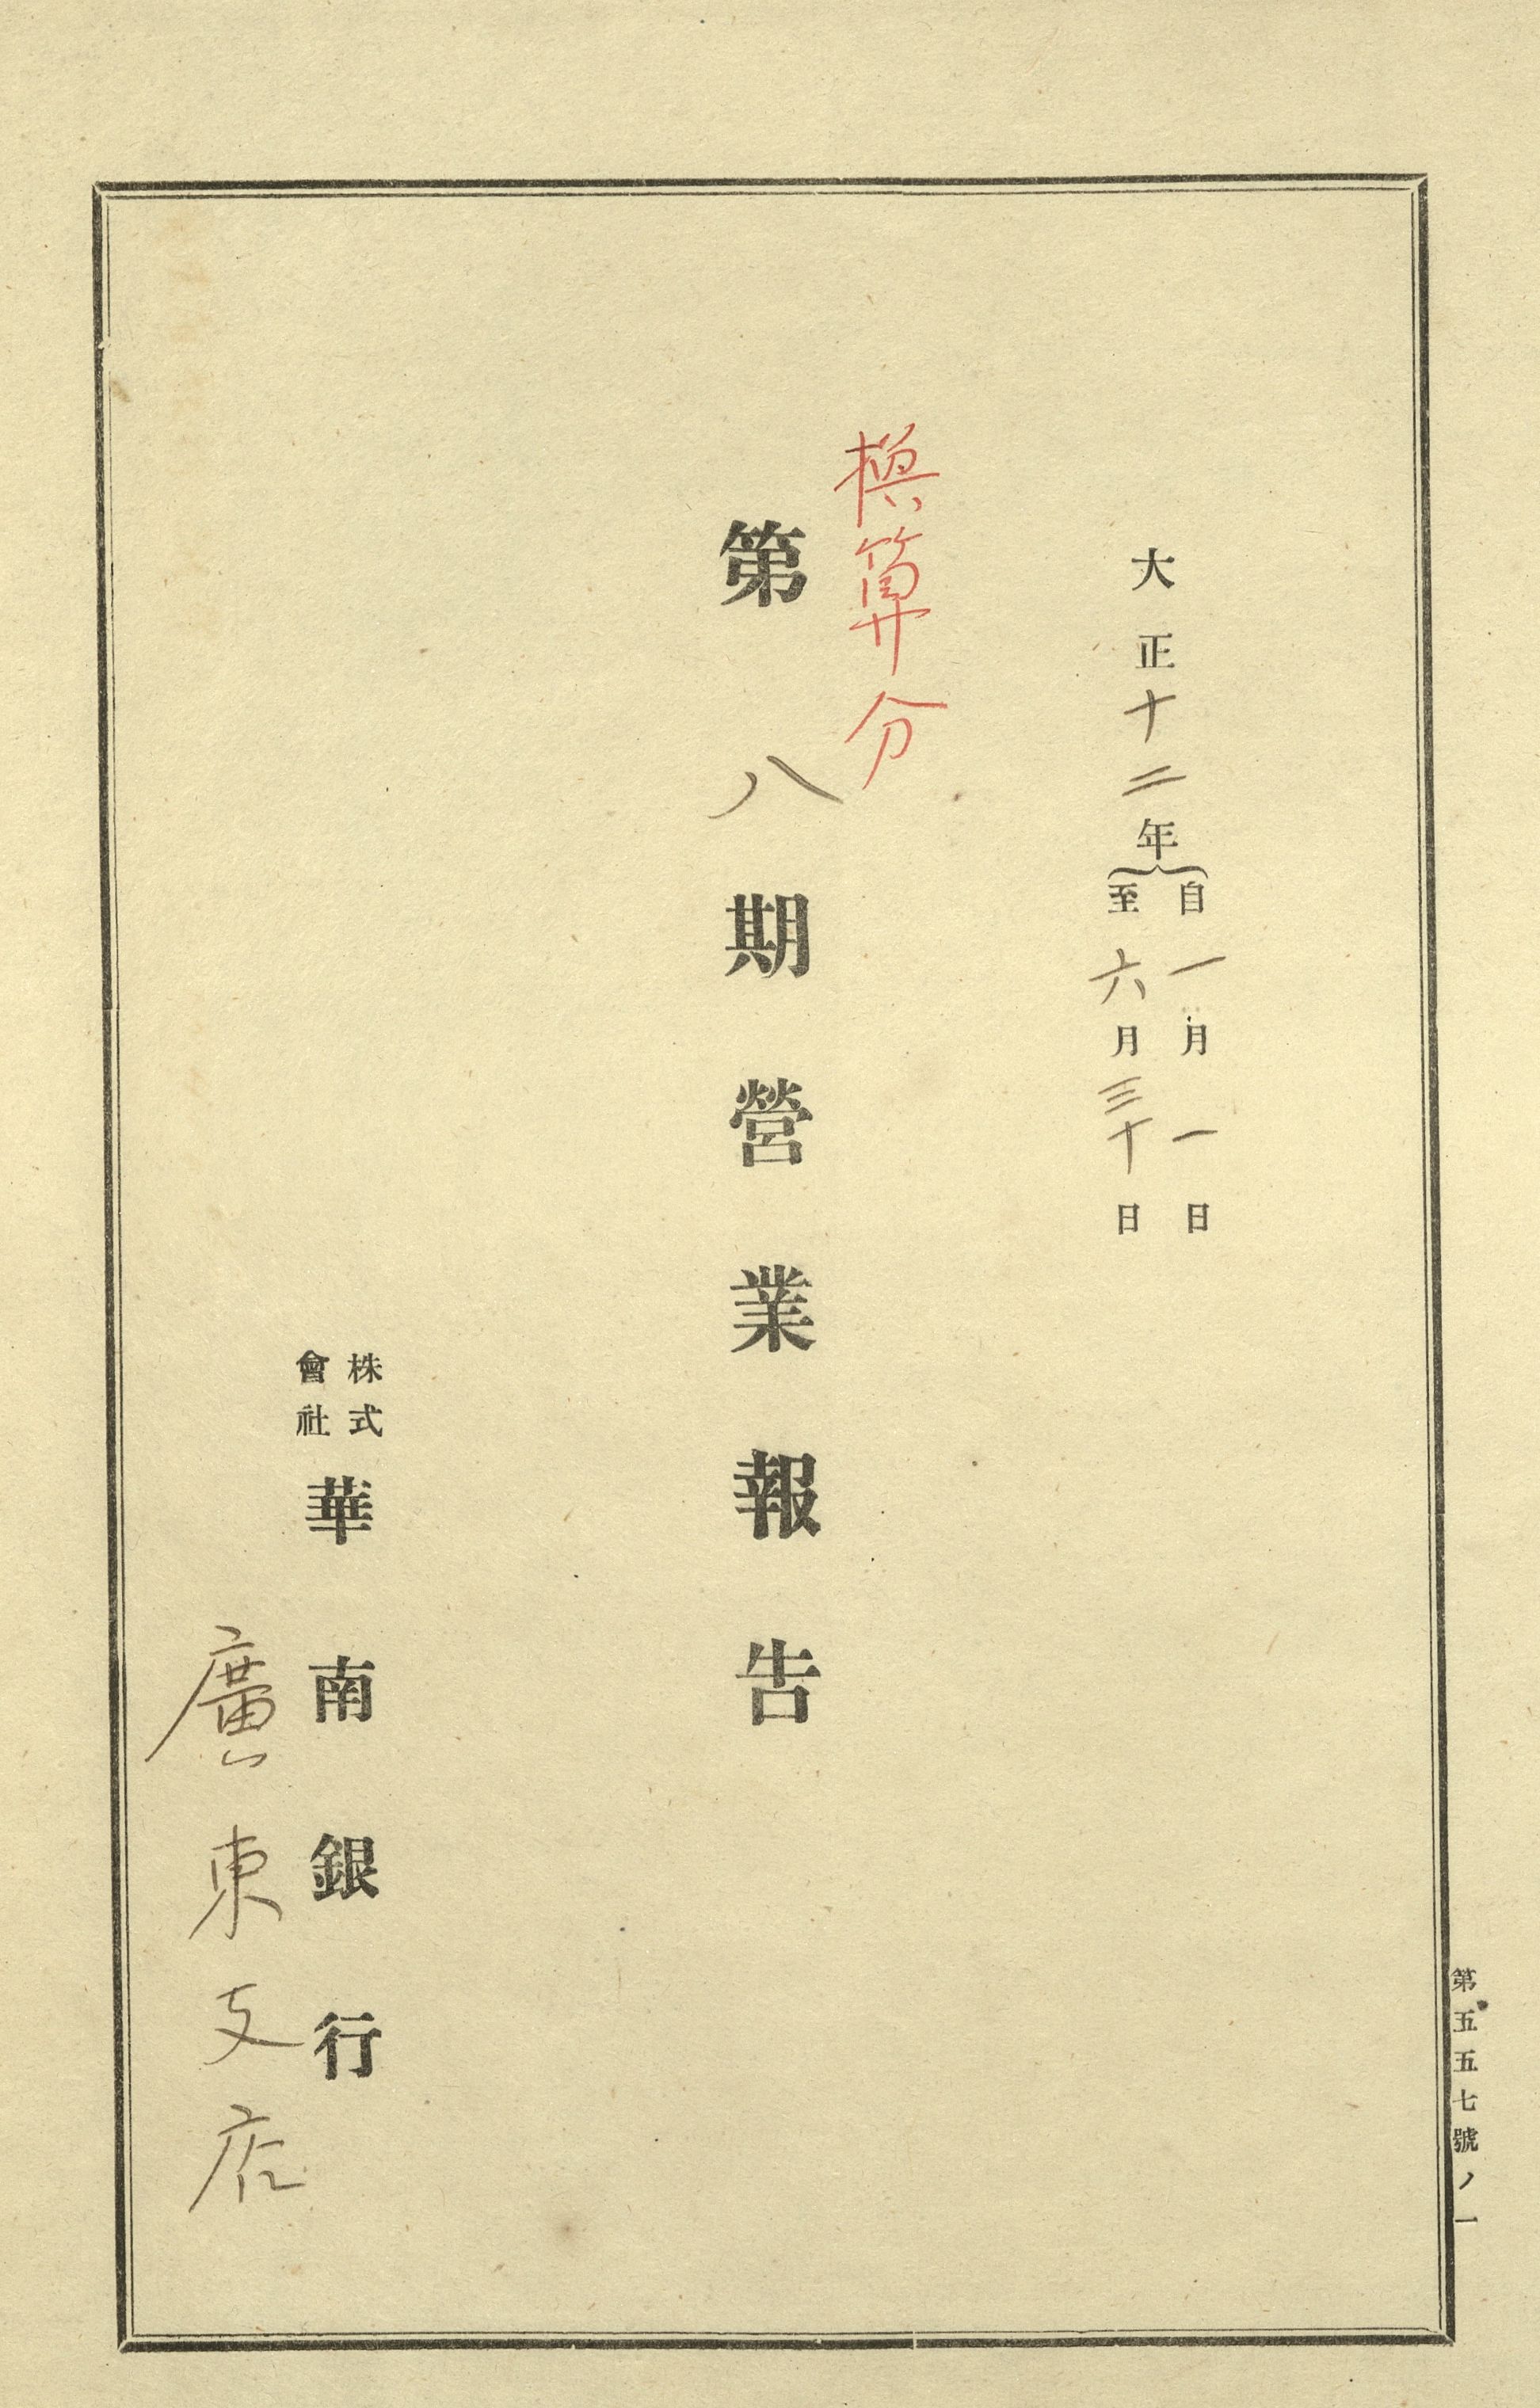 第五五七號ノ一
大正十二年
自一月一日
至六月三十日
模算分
第八期營業報告
株式
會社
華南銀行
廣東支店